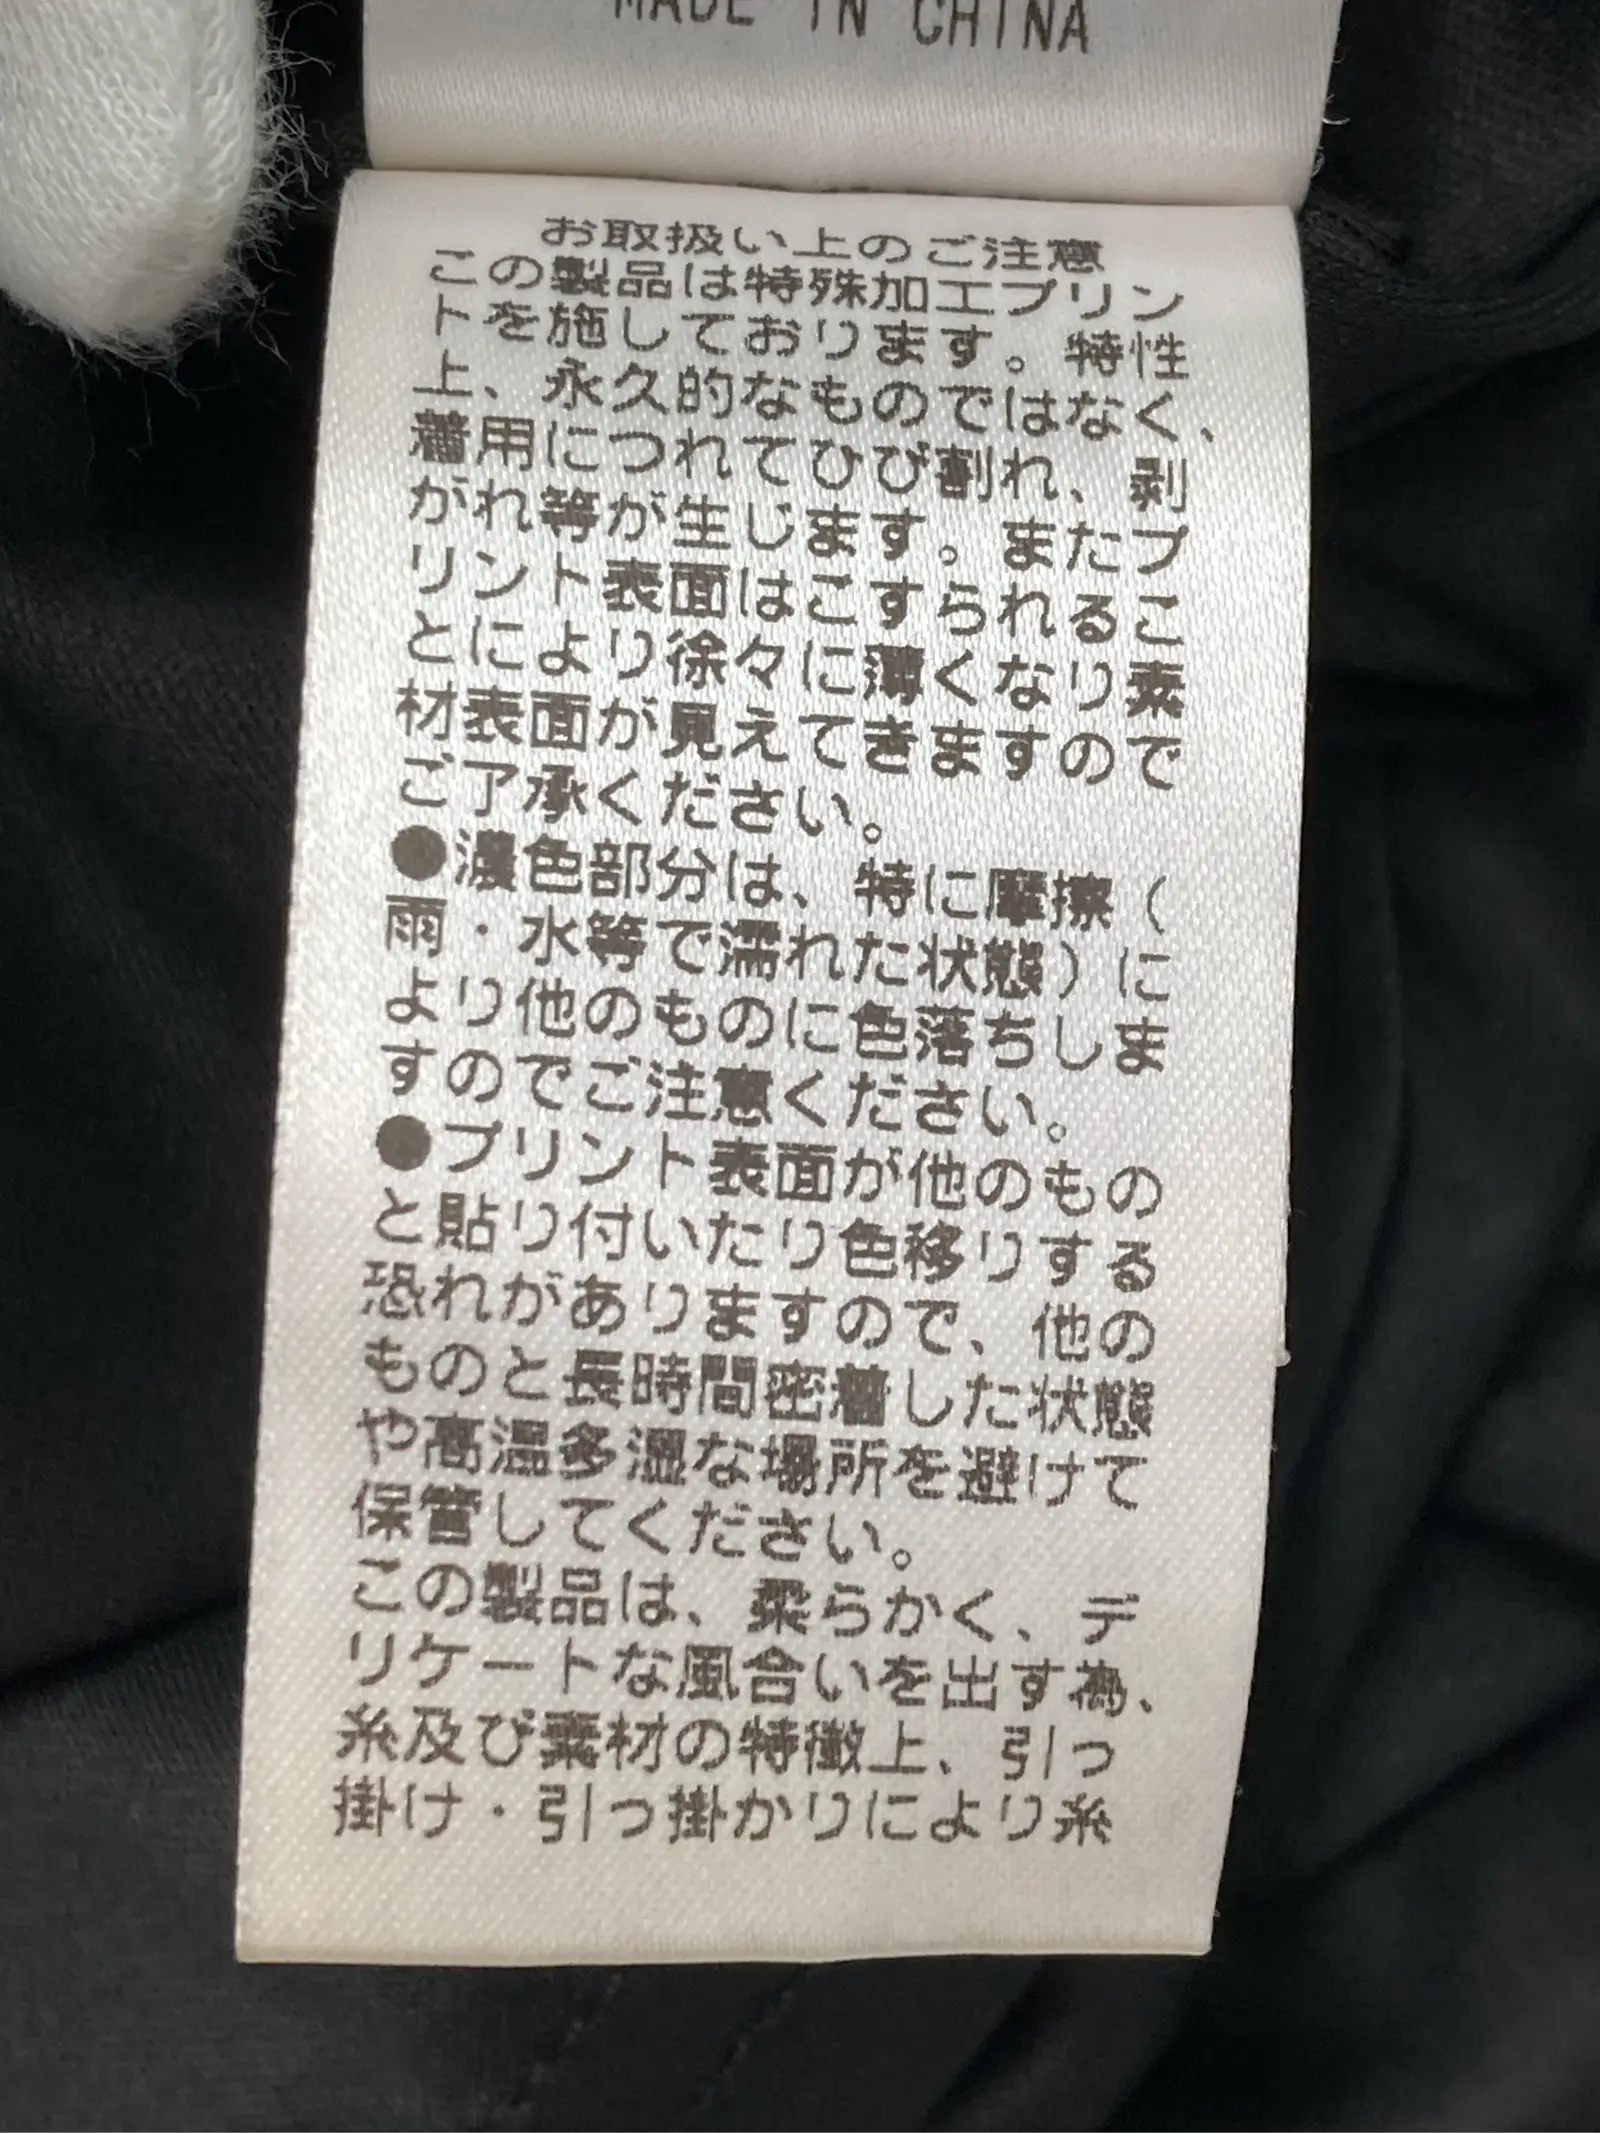 MADE IN CHINA
お取扱い上のご注意
この製品は特殊加工プリン
トを施しております。特性
上、永久的なものではなく、
着用につれてひび割れ、剥
がれ等が生じます。またプ
リント表面はこすられるこ
とにより徐々に薄くなり素
材表面が見えてきますので
ご了承ください。
●濃色部分は、特に摩擦（
雨・水等で濡れた状態）に
より他のものに色落ちしま
すのでご注意ください。
●プリント表面が他のもの
と貼り付いたり色移りする
恐れがありますので、他の
ものと長時間密着した状態
や高温多湿な場所を避けて
保管してください。
この製品は、柔らかく、デ
リケートな風合いを出す為、
糸及び素材の特徴上、引っ
掛け・引っ掛かりにより糸